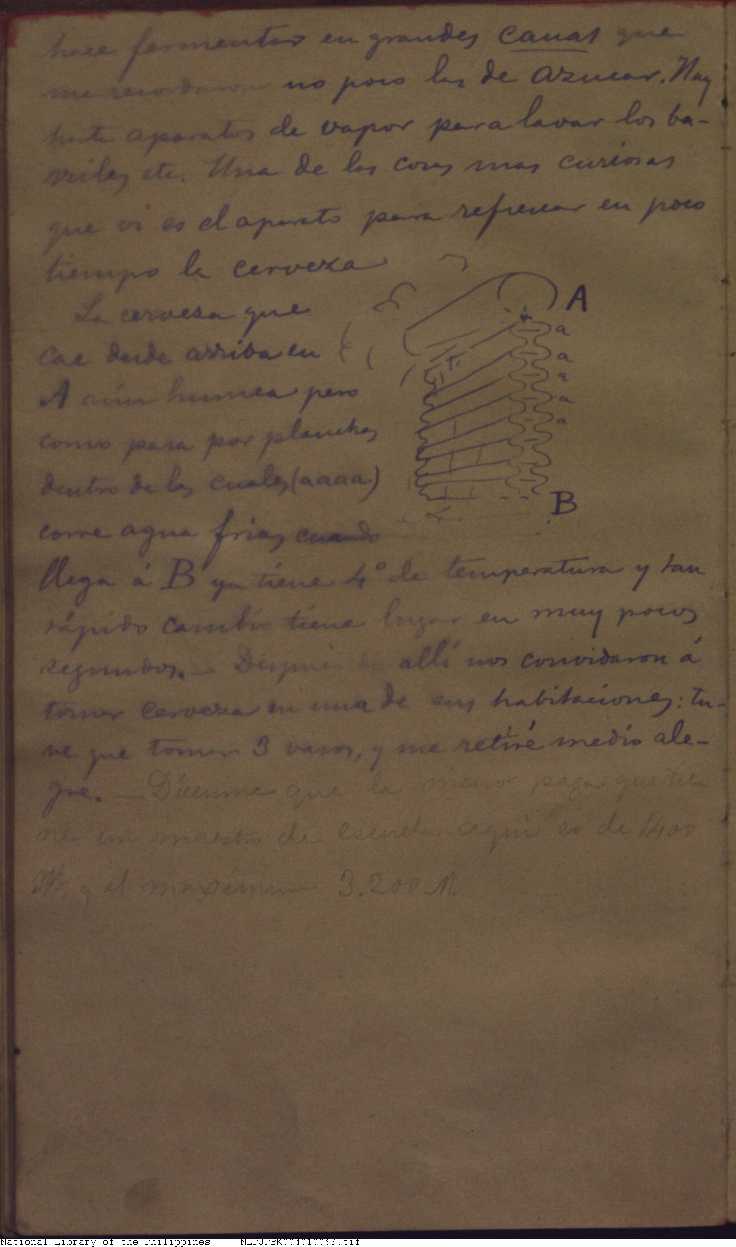 hace fermentar en grandes cauas que
me recordaron no poco las de azucar. Hay
hasta aparatos de vapor para lavar los ba-
rriles etc. Una de las cosas mas curiosas
que vi es el aparato para refrescar en poco
tiempo la cerveza
La cerveza que
cae desde arriba en
A aún humea pero
como pasa por planchas
dentro de las cuales (aaaa)
corre agua fria, cuando
llega á B ya tiene 4° de temperatura y tan
rápido cambio tiene lugar en muy pocos
segundos. — Después de allí nos convidaron á
tomar cerveza en una de sus habitaciones: tu-
ve que tomar 3 vasos, y me retiré medio ale-
gre. — Dícenme que la menor paga que tie
ne un maestro de escuela aquí es de 1400
M. y el maximum 3.200 M.
A
a
a
a
a
a
B
National Library of the Philippines